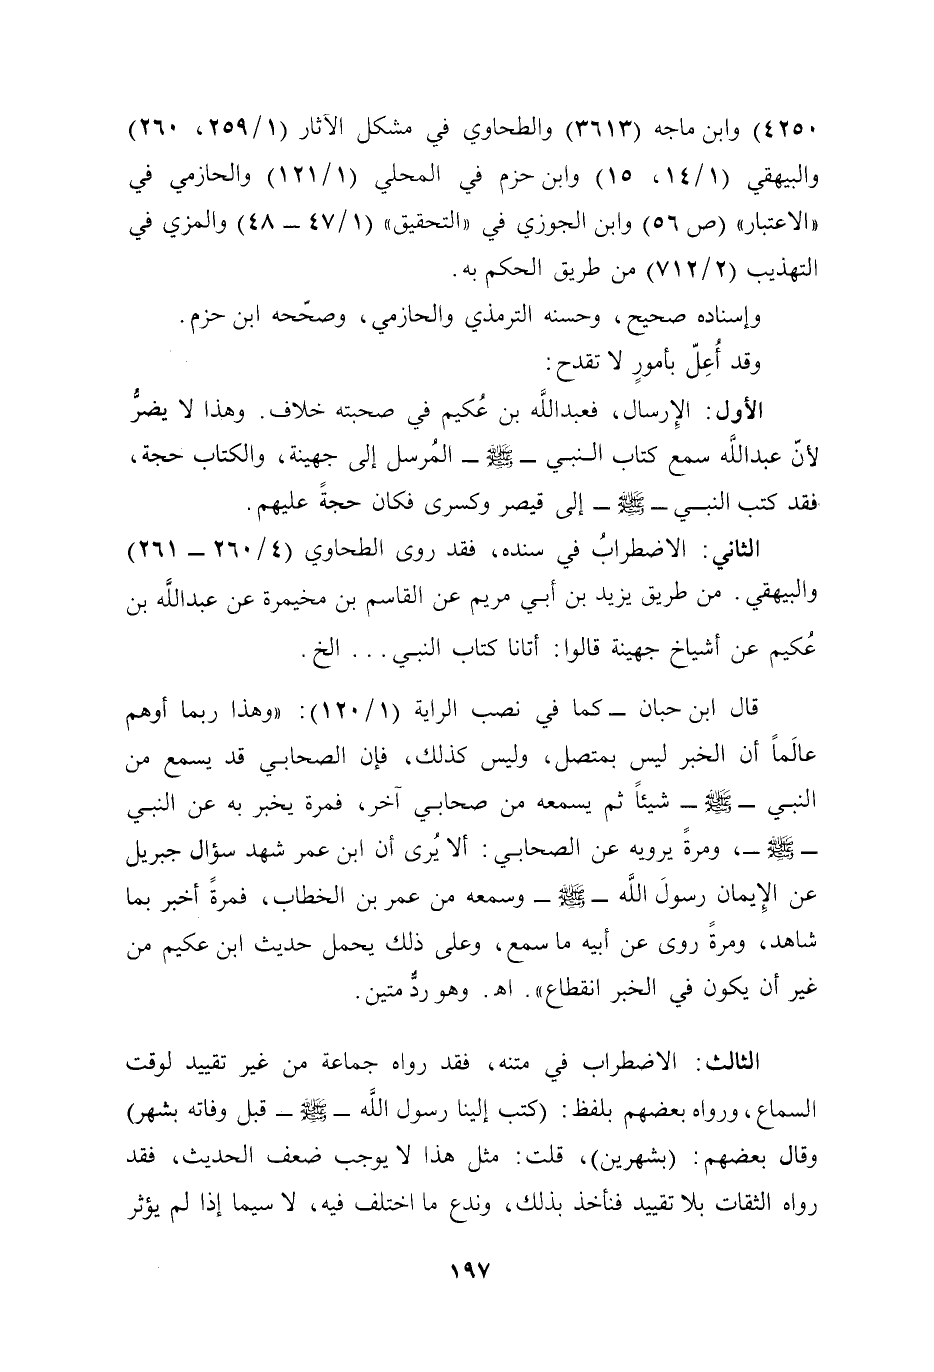 ٤٢٥٠) وابن ماجه (٣٦١٣) والطحاوي في مشكل الآثار (٢٥٩/١، ٢٦٠)
والبيهقي (١٤/١، ١٥) وابن حزم في المحلي (١٢١/١) والحازمي في
«الاعتبار» (ص ٥٦) وابن الجوزي في «التحقيق» (٤٧/١ ــ ٤٨) والمزي في
التهذيب (٧١٢/٢) من طريق الحكم به.
وإسناده صحيح، وحسنه الترمذي والحازمي، وصحّحه ابن حزم.
وقد أُعِلّ بأمورٍ لا تقدح:
الأول: الإرسال، فعبدالله بن عُكيم في صحبته خلاف. وهذا لا يضرُّ
لأنّ عبدالله سمع كتاب النبي ــ ﷺ ــ المُرسل إلى جهينة، والكتاب حجة،
فقد كتب النبي ــ ﷺ ــ إلى قيصر وكسرى فكان حجةً عليهم.
الثاني: الاضطرابُ في سنده، فقد روى الطحاوي (٢٦٠/٤ ــ ٢٦١)
والبيهقي. من طريق يزيد بن أبي مريم عن القاسم بن مخيمرة عن عبدالله بن
عُكيم عن أشياخ جهينة قالوا: أتانا كتاب النبي... الخ.
قال ابن حبان ــ كما في نصب الراية (١٢٠/١): «وهذا ربما أوهم
عالَماً أن الخبر ليس بمتصل، وليس كذلك، فإن الصحابي قد يسمع من
النبي ــ ﷺ ــ شيئاً ثم يسمعه من صحابي آخر، فمرة يخبر به عن النبي
ــ ﷺ ــ، ومرةً يرويه عن الصحابي: ألا يُرى أن ابن عمر شهد سؤال جبريل
عن الإيمان رسولَ الله ــ ﷺ ــ وسمعه من عمر بن الخطاب، فمرةً أخبر بما
شاهد، ومرةً روى عن أبيه ما سمع، وعلى ذلك يحمل حديث ابن عكيم من
غير أن يكون في الخبر انقطاع». اهـ. وهو ردٌّ متين.
الثالث: الاضطراب في متنه، فقد رواه جماعة من غير تقييد لوقت
السماع، ورواه بعضهم بلفظ: (كتب إلينا رسول الله ــ ﷺ ــ قبل وفاته بشهر)
وقال بعضهم: (بشهرين)، قلت: مثل هذا لا يوجب ضعف الحديث، فقد
رواه الثقات بلا تقييد فنأخذ بذلك، وندع ما اختلف فيه، لا سيما إذا لم يؤثر
١٩٧